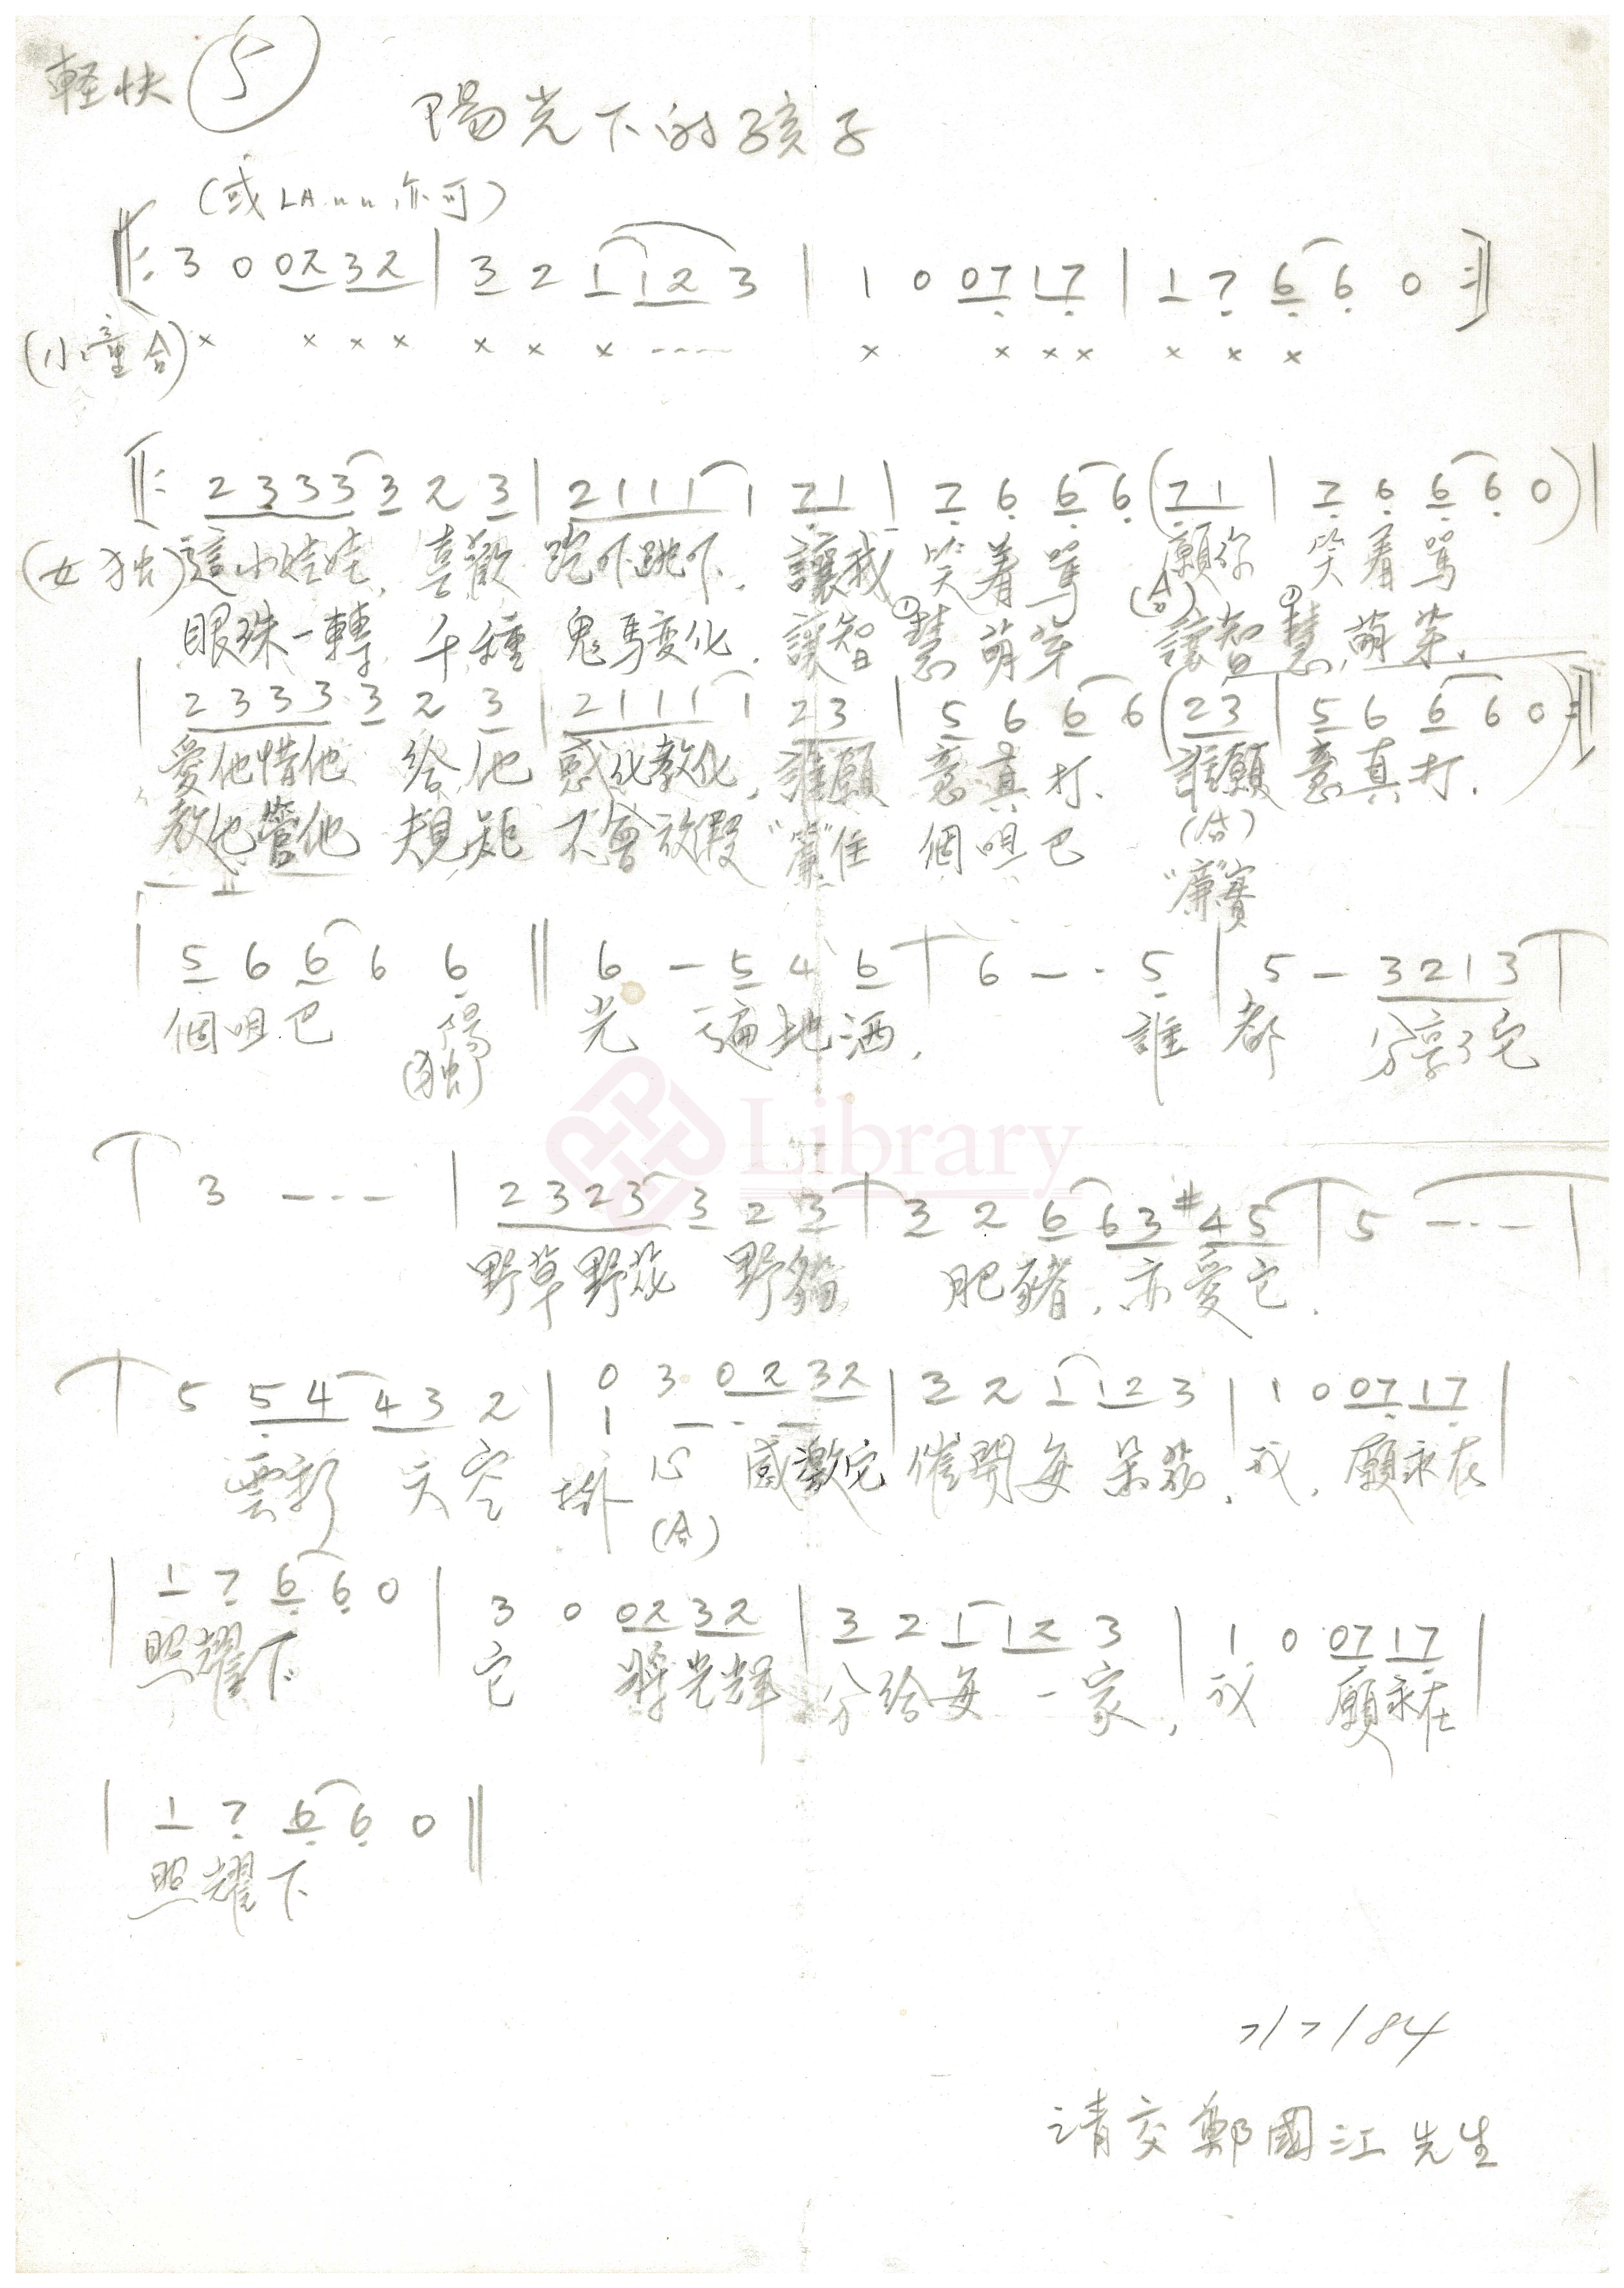 輕快 ⑤
陽光下的孩子
(或 LA 〃〃 亦可)
‖: 3 0 02 32 | 3 2 1 12 3 | 1 0 07 17 | 1 7 6 6 0 :‖
(小童合) × × × × × × × ---- × × × × × × ×
‖: 2 3 3 3 3 2 3 | 2 1 1 1 1 71 | 7 6 6 6 (71 | 7 6 6 6 0) |
(女独) 這小娃娃, 喜歡 跑下跳下, 讓我 笑着罵 (合) 願你 笑着罵
眼珠一轉 千種 鬼馬变化, 讓智慧 萌芽 讓智慧, 萌芽,
| 2 3 3 3 3 2 3 | 2 1 1 1 1 23 | 5 6 6 6 (23 | 5 6 6 6 0 :‖)
愛他惜他 給他 感化教化, 誰願 意真打, 誰願 意真打.
教他管他 規矩 不會放假 住 個咀巴 (合)
| 5 6 6 6 6 ‖ 6 - 5 4 6 | 6 - - 5 | 5 - 3 2 1 3 |
個咀巴 陽 光 遍地洒, 誰 都 分享了它
(独)
Library
| 3 - - - | 2 3 2 3 3 2 3 | 3 2 6 6 3 #4 5 | 5 - - - |
野草野花 野貓 肥豬, 亦愛它.
| 5 5 4 4 3 2 | 0 3 0 2 3 2 | 3 2 1 1 2 3 | 1 0 07 17 |
1 - - -
雲彩 天空 掛 心 感激它 催開每朵花, 我, 願永在
(合)
| 1 7 6 6 0 | 3 0 02 32 | 3 2 1 12 3 | 1 0 07 17 |
照耀下 它 將光輝 分給每一家, 我 願永在
| 1 7 6 6 0 ‖
照耀下
7/7/84
請交鄭國江先生